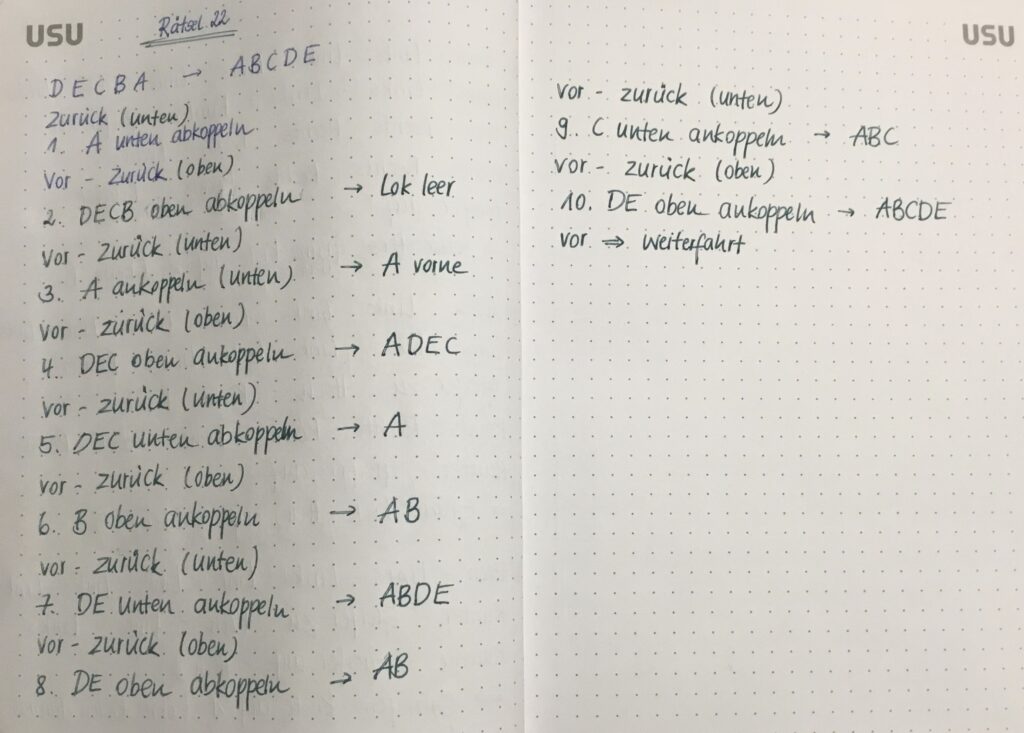 USU
Rätsel 22
DECBA → ABCDE
Zurück (unten)
1. A unten abkoppeln
Vor - Zurück (oben)
2. DECB oben abkoppeln → Lok leer
Vor - zurück (unten)
3. A ankoppeln (unten) → A vorne
Vor - zurück (oben)
4. DEC oben ankoppeln → ADEC
vor - zurück (unten)
5. DEC unten abkoppeln → A
vor - zurück (oben)
6. B oben ankoppeln → AB
vor - zurück (unten)
7. DE unten ankoppeln → ABDE
vor - zurück (oben)
8. DE oben abkoppeln → AB
USU
vor - zurück (unten)
9. C unten ankoppeln → ABC
vor - zurück (oben)
10. DE oben ankoppeln → ABCDE
vor ⇒ Weiterfahrt